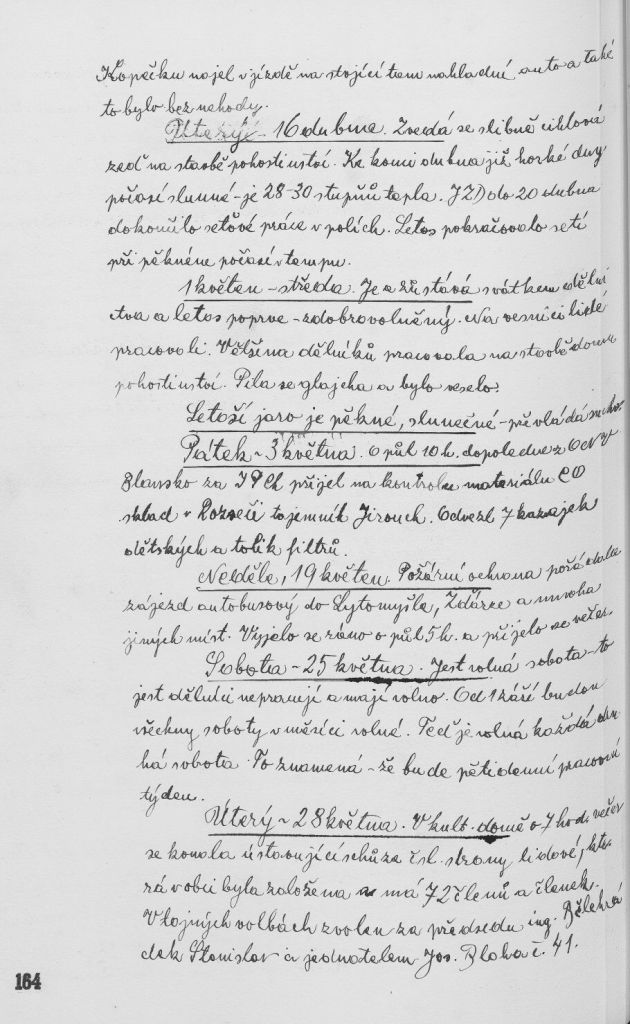 Kopečku najel v jízdě na stojící tam nakladní auto a také
to bylo bez nehody.
Úterý - 16 dubna. Zvedá se slibně cihlová
zeď na stavbě pohostinství. Ke konci dubna již horké dny
počasí slunné - je 28-30 stupňů tepla. JZD do 20 dubna
dokončilo seťové práce v polích. Letos pokračovalo setí
při pěkném počasí v tempu.
1 květen - středa. Je a zůstává svátkem dělni
ctva a letos poprve - zdobrovolněný. Na vesnici lidé
pracovali. Většina dělníků pracovala na stavbě domu
pohostinství. Pila se glajcha a bylo veselo.
Letoší jaro je pěkné, slunečné - převládá sucho.
Pátek - 3 května. O půl 10 h. dopoledne z ONV
Blansko za JPCh přijel na kontrolu materiálu CO
sklad v Rozseči tajemník Jirouch. Odvezl 7 kazajek
dětských a tolik filtrů.
Neděle, 19 květen. Požární ochrana pořádala
zájezd autobusový do Lytomyšle, Zdárce a mnoha
jiných míst. Vyjelo se ráno o půl 5 h. a přijelo se večer.
Sobota - 25 května. Jest volná sobota - to
jest dělníci nepracují a mají volno. Od 1 záší budou
všechny soboty v měsíci volné. Teď je volná každá dru
há sobota. To znamená - že bude pětidenní pracovní
týden.
Úterý - 28 května. V kult. domě o 7 hod. večer
se konala ústavující schůze čsl. strany lidové, kte-
rá v obci byla založena a má 72 členů a členek.
V tajných volbách zvolen za předsedu ing. Bělehrá
dek Stanislav a jednatelem Jos. Blaha č. 41.
164